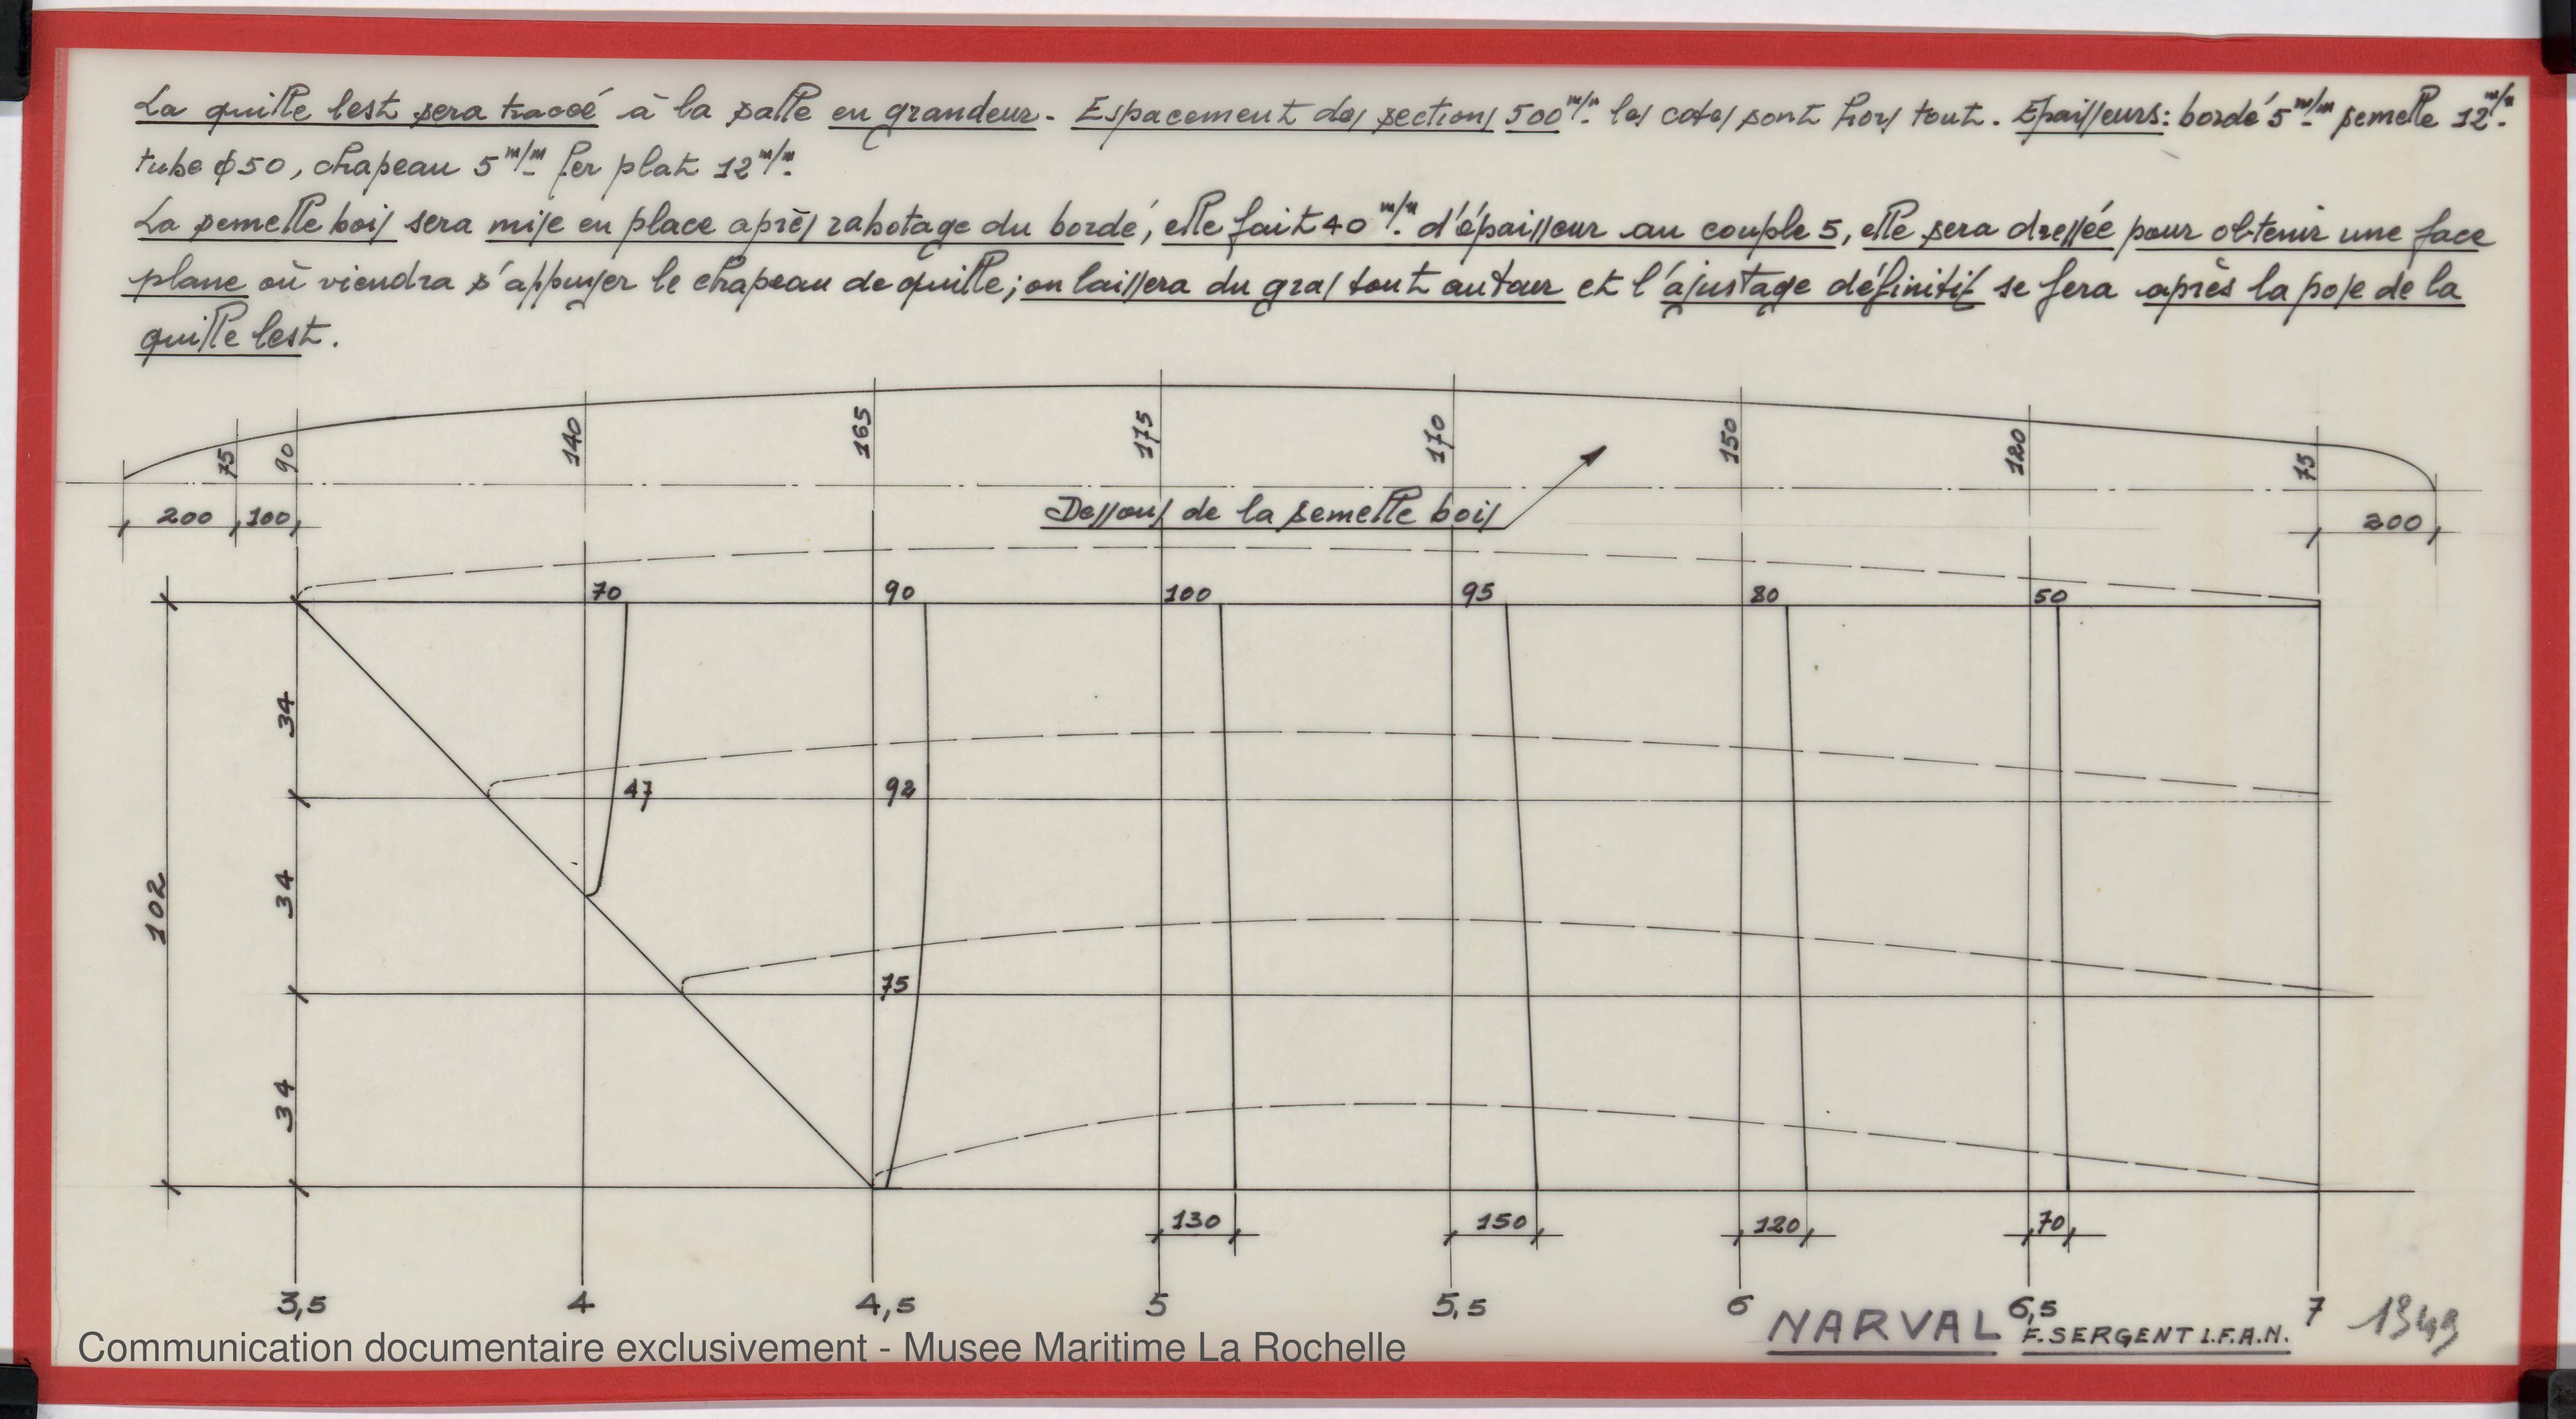 La quille lest sera tracée à la salle en grandeur - Espacement des sections 500 m/m. les cotes sont hors tout. Epaisseurs: bordé 5 m/m semelle 12 m/m.
tube φ50, chapeau 5 m/m fer plat 12 m/m.
La semelle bois sera mise en place après rabotage du bordé, elle fait 40 m/m. d'épaisseur au couple 5, elle sera dressée pour obtenir une face
plane où viendra s'appuyer le chapeau de quille; on laissera du gras tout autour et l'ajustage définitif se fera après la pose de la
quille lest.
75 90 140 165 175 170 150 120 75
200 100 Dessous de la semelle bois 200
70 90 100 95 80 50
34
47 92
34
102
75
34
130 150 120 70
3,5 4 4,5 5 5,5 6 6,5 7
NARVAL F. SERGENT I.F.A.N. 1349
Communication documentaire exclusivement - Musee Maritime La Rochelle